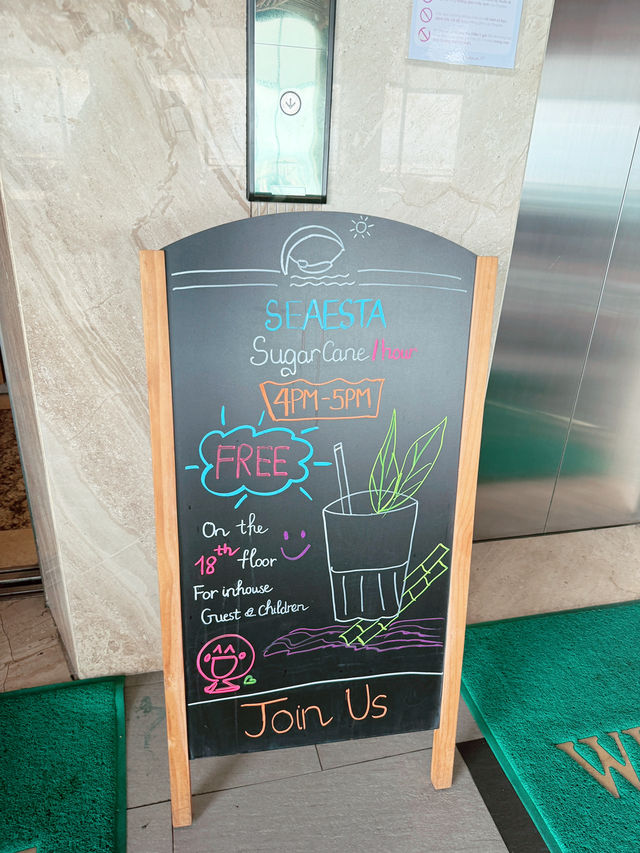 SEAESTA
SugarCane Hour
4PM-5PM
FREE
On the
18th floor
For inhouse
Guest & children
Join Us